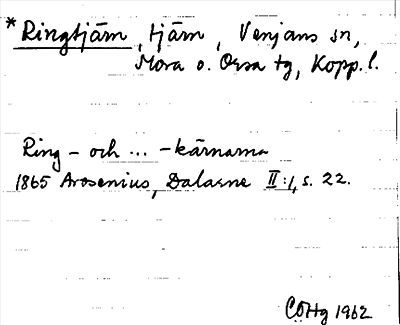 *Ringtjärn, tjärn, Venjans sn,
Mora o. Orsa tg, Kopp. l.
Ring- och ... -kärnarna
1865 Arosenius, Dalarne II:1, s. 22.
1962